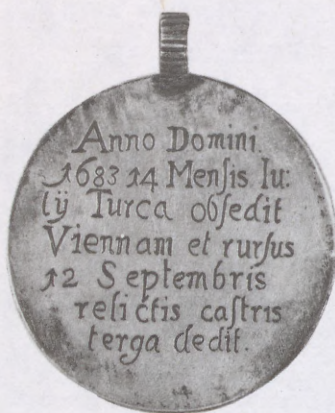 Anno Domini.
1683 14 Menſis Iu:
lÿ Turca obſedit
Viennam et rurſus
12 Septembris
relictis caſtris
terga dedit.